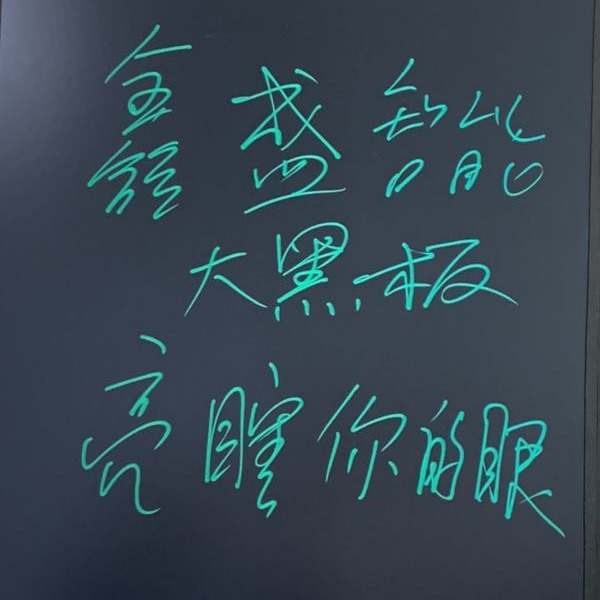 鑫盛智能
大黑板
亮瞎你的眼